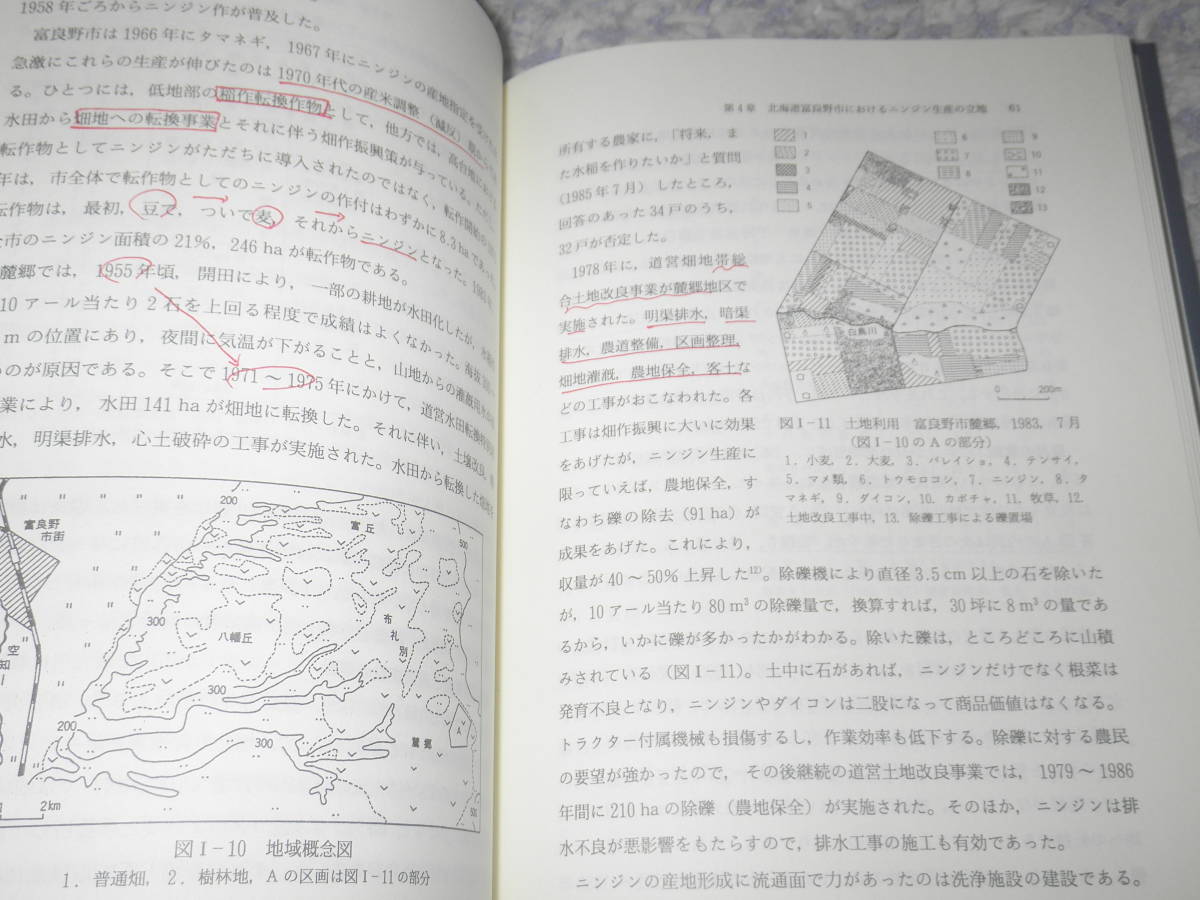 1958年ごろからニンジン作が普及した。
富良野市は1966年にタマネギ，1967年にニンジンの産地指定を受け
急激にこれらの生産が伸びたのは1970年代の産米調整（減反）
る。ひとつには，低地部の稲作転換作物として，他方では，高台地
水田から畑地への転換事業とそれに伴う畑作振興策が与っている。
転作物としてニンジンがただちに導入されたのではなく，転作開始の
年は，市全体で転作物としてのニンジンの作付はわずかに8.3haであっ
転作物は，最初，豆で，ついで麦，それからニンジンとなった。
市のニンジン面積の21%，246 haが転作物である。
麓郷では，1955年頃，開田により，一部の耕地が水田化したが，
10アール当たり2石を上回る程度で成績はよくなかった。海抜
mの位置にあり，夜間に気温が下がることと，山地からの灌漑用
のが原因である。そこで1971～1975年にかけて，道営水田転換
業により，水田141 haが畑地に転換した。それに伴い，土壌改良，
水，明渠排水，心土破砕の工事が実施された。水田から転換した
富良野
市街
空
知
川
200
300
200
300
300
300
200
500
500
富丘
八幡丘
布
礼
別
麓郷
A
2km
図Ⅰ-10　地域概念図
1．普通畑，2．樹林地，Aの区画は図Ⅰ-11の部分
第4章　北海道富良野市におけるニンジン生産の立地　61
所有する農家に，「将来，ま
た水稲を作りたいか」と質問
(1985年7月）したところ，
回答のあった34戸のうち，
32戸が否定した。
1978年に，道営畑地帯総
合土地改良事業が麓郷地区で
実施された。明渠排水，暗渠
排水，農道整備，区画整理，
畑地灌漑，農地保全，客土な
どの工事がおこなわれた。各
工事は畑作振興に大いに効果
をあげたが，ニンジン生産に
限っていえば，農地保全，す
なわち礫の除去（91 ha）が
成果をあげた。これにより，
1
2
3
4
5
6
7
8
9
10
11
12
13
白鳥川
0　200m
図Ⅰ-11　土地利用　富良野市麓郷，1983，7月
（図Ⅰ-10のAの部分）
1．小麦，2．大麦，3．バレイショ，4．テンサイ，
5．マメ類，6．トウモロコシ，7．ニンジン，8．タ
マネギ，9．ダイコン，10．カボチャ，11．牧草，12．
土地改良工事中，13．除礫工事による礫置場
収量が40～50%上昇した¹²⁾。除礫機により直径3.5 cm以上の石を除いた
が，10アール当たり80 m³の除礫量で，換算すれば，30坪に8 m³の量であ
るから，いかに礫が多かったかがわかる。除いた礫は，ところどころに山積
みされている（図Ⅰ-11）。土中に石があれば，ニンジンだけでなく根菜は
発育不良となり，ニンジンやダイコンは二股になって商品価値はなくなる。
トラクター付属機械も損傷するし，作業効率も低下する。除礫に対する農民
の要望が強かったので，その後継続の道営土地改良事業では，1979～1986
年間に210 haの除礫（農地保全）が実施された。そのほか，ニンジンは排
水不良が悪影響をもたらすので，排水工事の施工も有効であった。
ニンジンの産地形成に流通面で力があったのは洗浄施設の建設である。